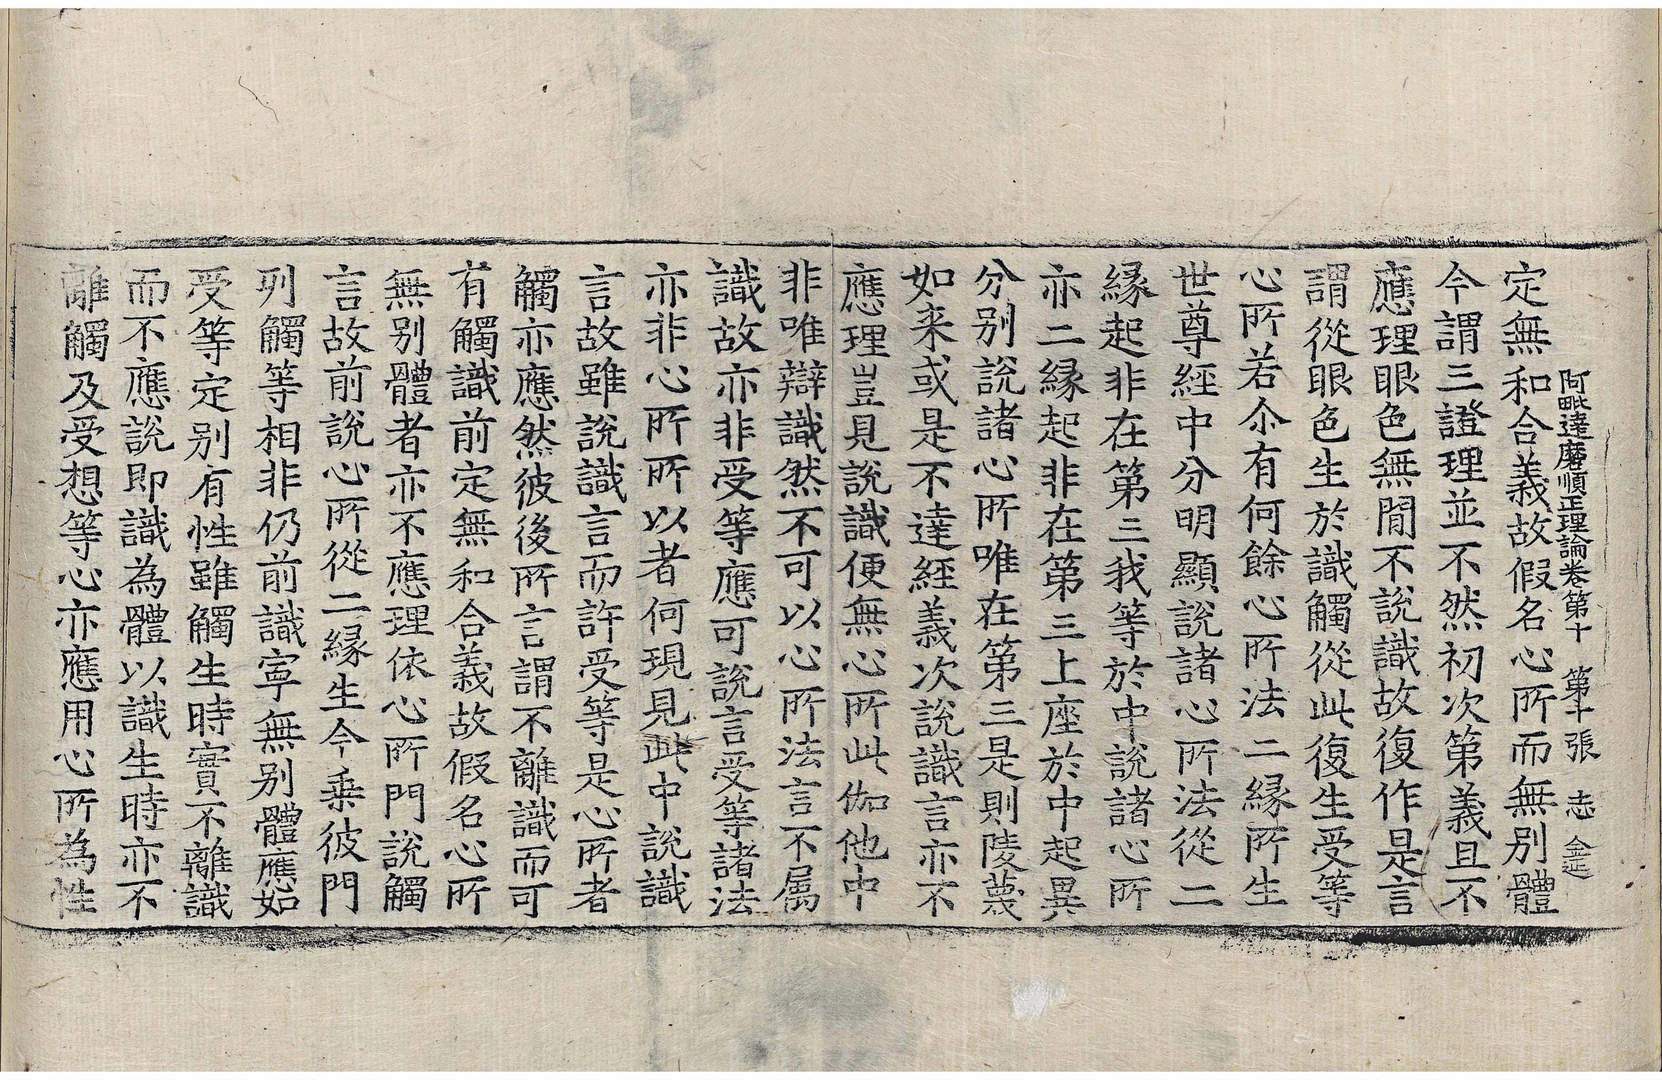 阿毗達磨順正理論卷第十　第十張　志
定無和合義故假名心所而無別體
今謂三證理並不然初次第義且不
應理眼色無閒不說識故復作是言
謂從眼色生於識觸從此復生受等
心所若尒有何餘心所法二緣所生
世尊經中分明顯說諸心所法從二
緣起非在第三我等於中說諸心所
亦二緣起非在第三上座於中起異
分別說諸心所唯在第三是則陵蔑
如来或是不達經義次說識言亦不
應理豈見說識便無心所此伽他中
非唯辯識然不可以心所法言不属
識故亦非受等應可說言受等諸法
亦非心所所以者何現見此中說識
言故雖說識言而許受等是心所者
觸亦應然彼後所言謂不離識而可
有觸識前定無和合義故假名心所
無别體者亦不應理依心所門說觸
言故前說心所從二緣生今乗彼門
列觸等相非仍前識寧無別體應如
受等定别有性雖觸生時實不離識
而不應說即識為體以識生時亦不
離觸及受想等心亦應用心所為性